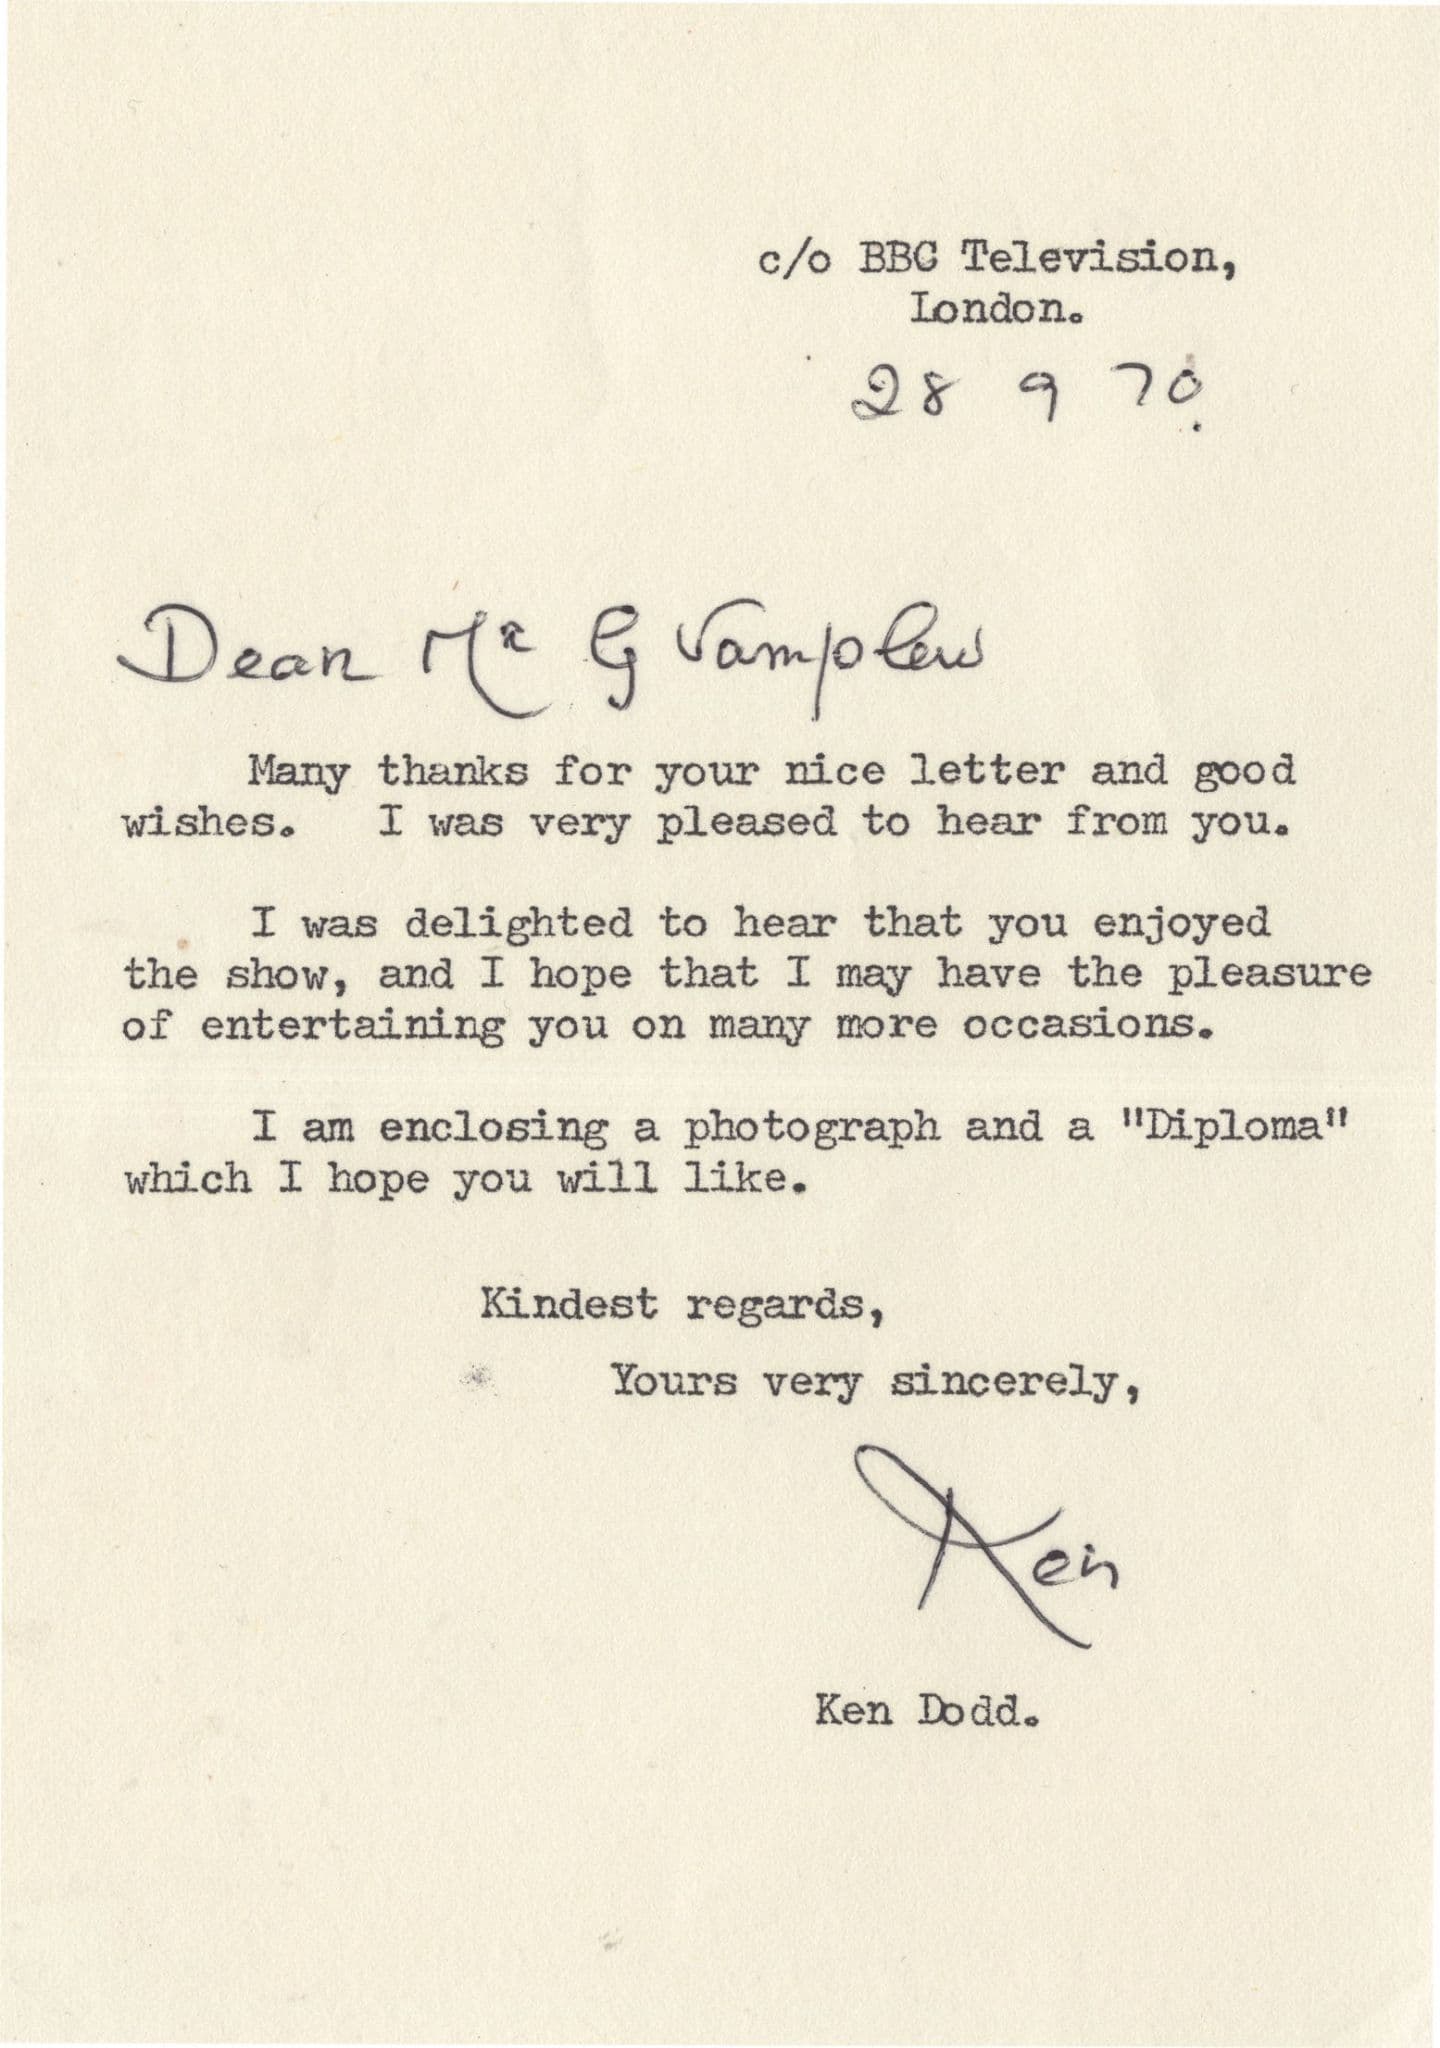 c/o BBC Television,
London.
28 9 70.
Dear Mr G Vamplew
Many thanks for your nice letter and good
wishes. I was very pleased to hear from you.
I was delighted to hear that you enjoyed
the show, and I hope that I may have the pleasure
of entertaining you on many more occasions.
I am enclosing a photograph and a "Diploma"
which I hope you will like.
Kindest regards,
Yours very sincerely,
Ken
Ken Dodd.